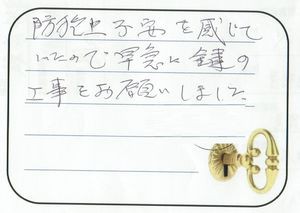 防犯上不安を感じて
いたので早急に鍵の
工事をお願いしました。